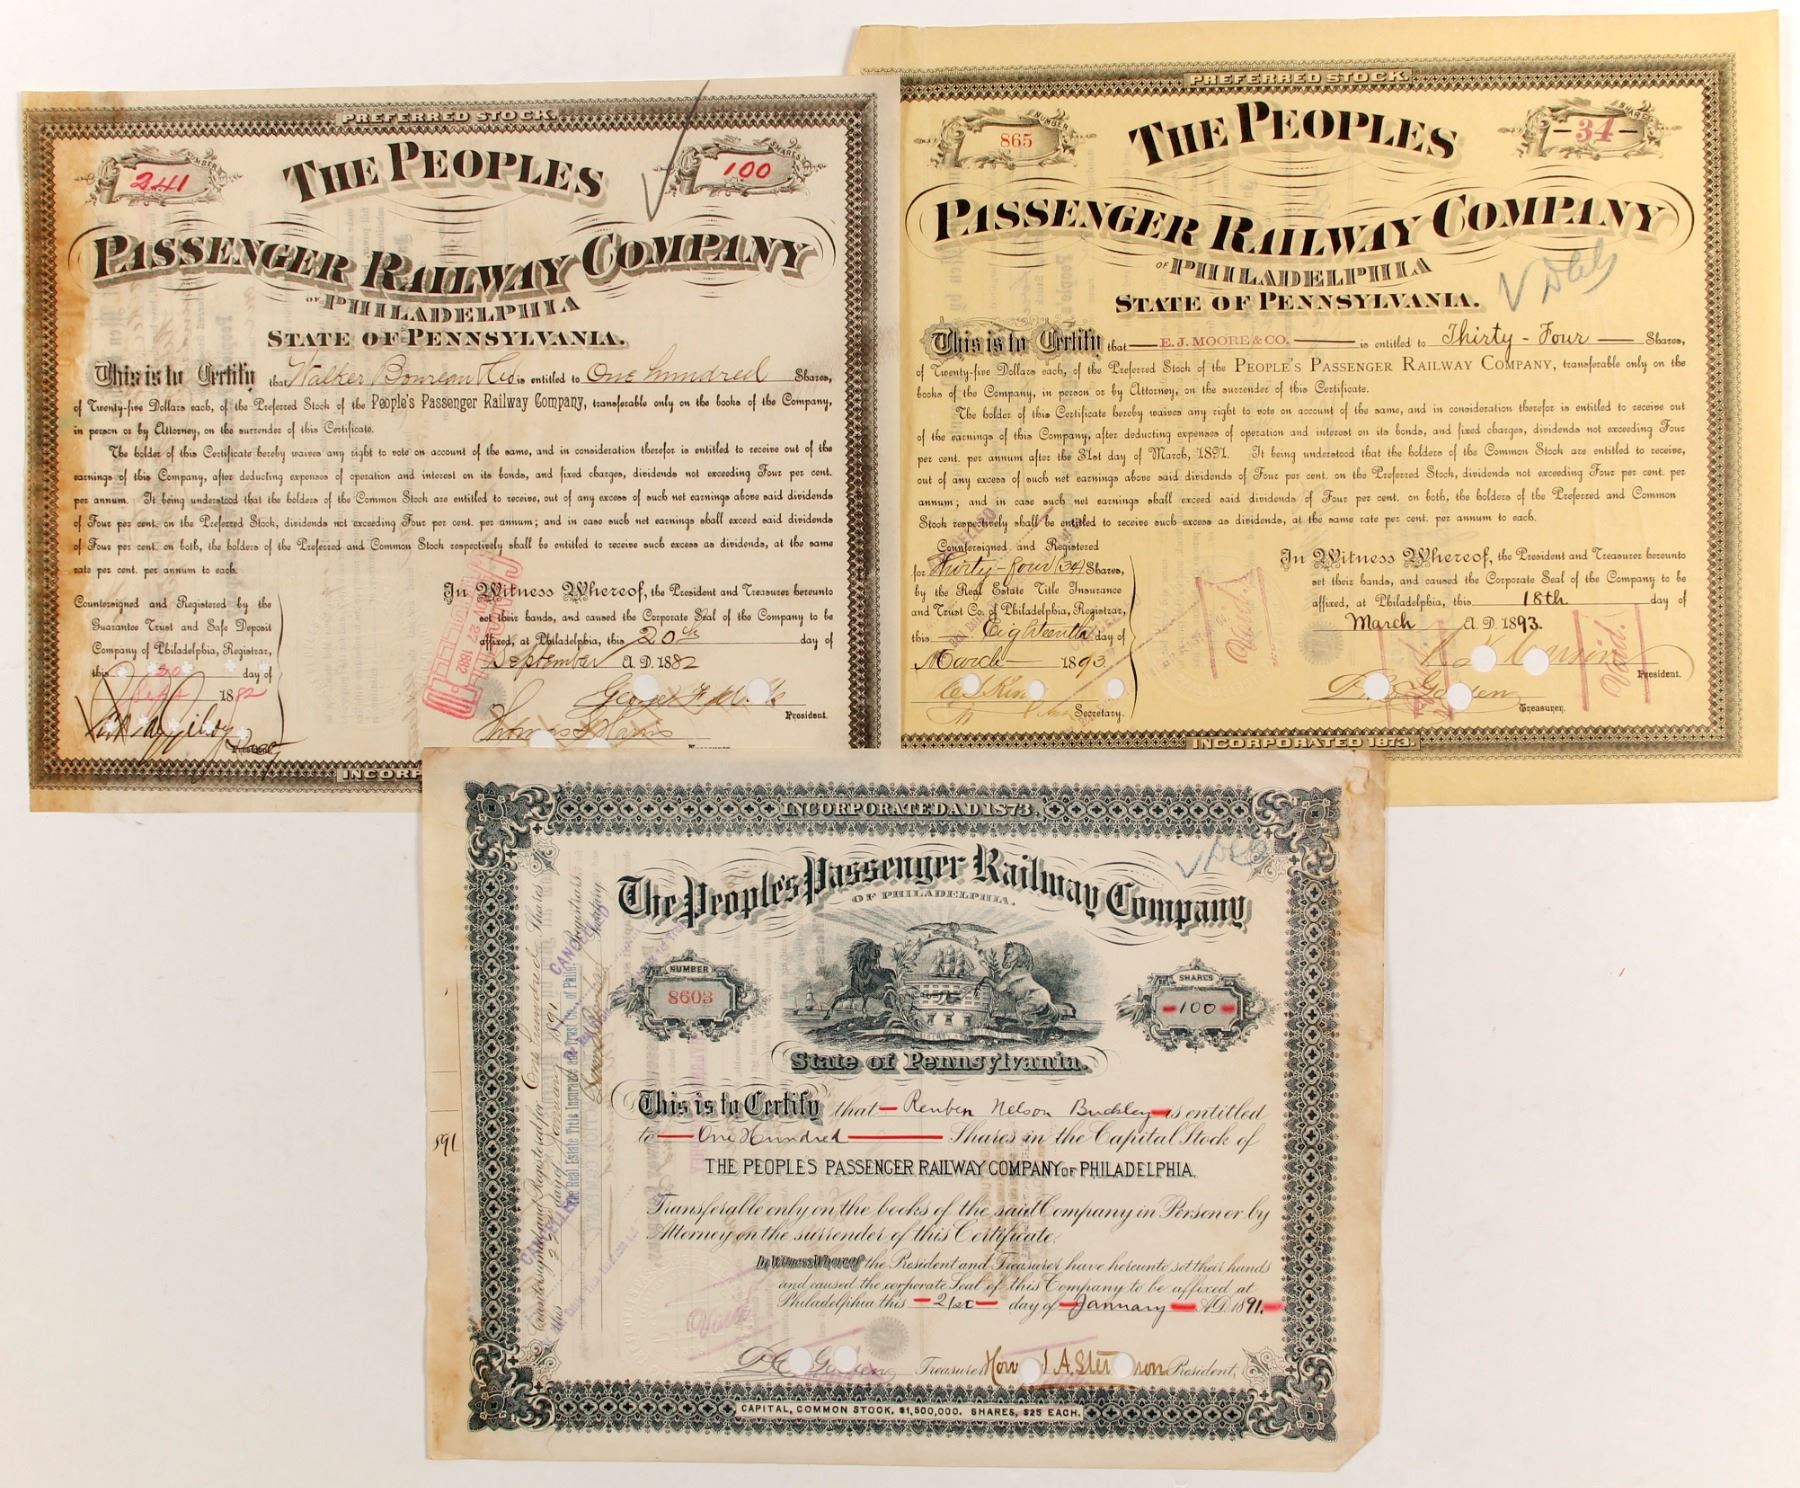 PREFERRED STOCK.
NUMBER
241
SHARES
100
THE PEOPLES
PASSENGER RAILWAY COMPANY
OF PHILADELPHIA
STATE OF PENNSYLVANIA.
This is to Certify that Walker is entitled to One hundred Shares,
of Twenty-five Dollars each, of the Preferred Stock of the People's Passenger Railway Company, transferable only on the books of the Company,
in person or by Attorney, on the surrender of this Certificate.
The holder of this Certificate hereby waives any right to vote on account of the same, and in consideration therefor is entitled to receive out of the
earnings of this Company, after deducting expenses of operation and interest on its bonds, and fixed charges, dividends not exceeding Four per cent.
per annum. It being understood that the holders of the Common Stock are entitled to receive, out of any excess of such net earnings above said dividends
of Four per cent. on the Preferred Stock, dividends not exceeding Four per cent. per annum; and in case such net earnings shall exceed said dividends
of Four per cent. on both, the holders of the Preferred and Common Stock respectively shall be entitled to receive such excess as dividends, at the same
rate per cent. per annum to each.
Countersigned and Registered by the
Guarantee Trust and Safe Deposit
Company of Philadelphia, Registrar,
this 20 day of
Sept 1882
In Witness Whereof, the President and Treasurer hereunto
set their hands, and caused the Corporate Seal of the Company to be
affixed, at Philadelphia, this 20th day of
September A.D. 1882
President.
NOV 27 1882
INCORP
PREFERRED STOCK.
NUMBER
865
SHARES
-34-
THE PEOPLES
PASSENGER RAILWAY COMPANY
OF PHILADELPHIA
STATE OF PENNSYLVANIA.
This is to Certify that E. J. MOORE & CO. is entitled to Thirty-Four Shares,
of Twenty-five Dollars each, of the Preferred Stock of the PEOPLE'S PASSENGER RAILWAY COMPANY, transferable only on the
books of the Company, in person or by Attorney, on the surrender of this Certificate.
The holder of this Certificate hereby waives any right to vote on account of the same, and in consideration therefor is entitled to receive out
of the earnings of this Company, after deducting expenses of operation and interest on its bonds, and fixed charges, dividends not exceeding Four
per cent. per annum after the 31st day of March, 1891. It being understood that the holders of the Common Stock are entitled to receive,
out of any excess of such net earnings above said dividends of Four per cent. on the Preferred Stock, dividends not exceeding Four per cent. per
annum; and in case such net earnings shall exceed said dividends of Four per cent. on both, the holders of the Preferred and Common
Stock respectively shall be entitled to receive such excess as dividends, at the same rate per cent. per annum to each.
Countersigned and Registered
for Thirty-four (34) Shares,
by the Real Estate Title Insurance
and Trust Co. of Philadelphia, Registrar,
this Eighteenth day of
March 1893.
Secretary.
In Witness Whereof, the President and Treasurer hereunto
set their hands, and caused the Corporate Seal of the Company to be
affixed, at Philadelphia, this 18th day of
March A.D. 1893.
President.
Treasurer.
INCORPORATED 1873.
INCORPORATED A.D. 1873.
The Peoples Passenger Railway Company
OF PHILADELPHIA.
NUMBER
8603
SHARES
-100-
State of Pennsylvania.
This is to Certify that Reuben Nelson Buckley is entitled
to One Hundred Shares in the Capital Stock of
THE PEOPLES PASSENGER RAILWAY COMPANY OF PHILADELPHIA.
Transferable only on the books of the said Company in Person or by
Attorney on the surrender of this Certificate.
In Witness Whereof the President and Treasurer have hereunto set their hands
and caused the corporate Seal of this Company to be affixed at
Philadelphia this 21st day of January A.D. 1891.
Treasurer
President.
CAPITAL, COMMON STOCK, $1,500,000. SHARES, $25 EACH.
Countersigned and Registered for One Hundred Shares
this 22 day of January 1891
The Real Estate Title Insurance and Trust Co. of Phila Registrars
CANCELLED
591